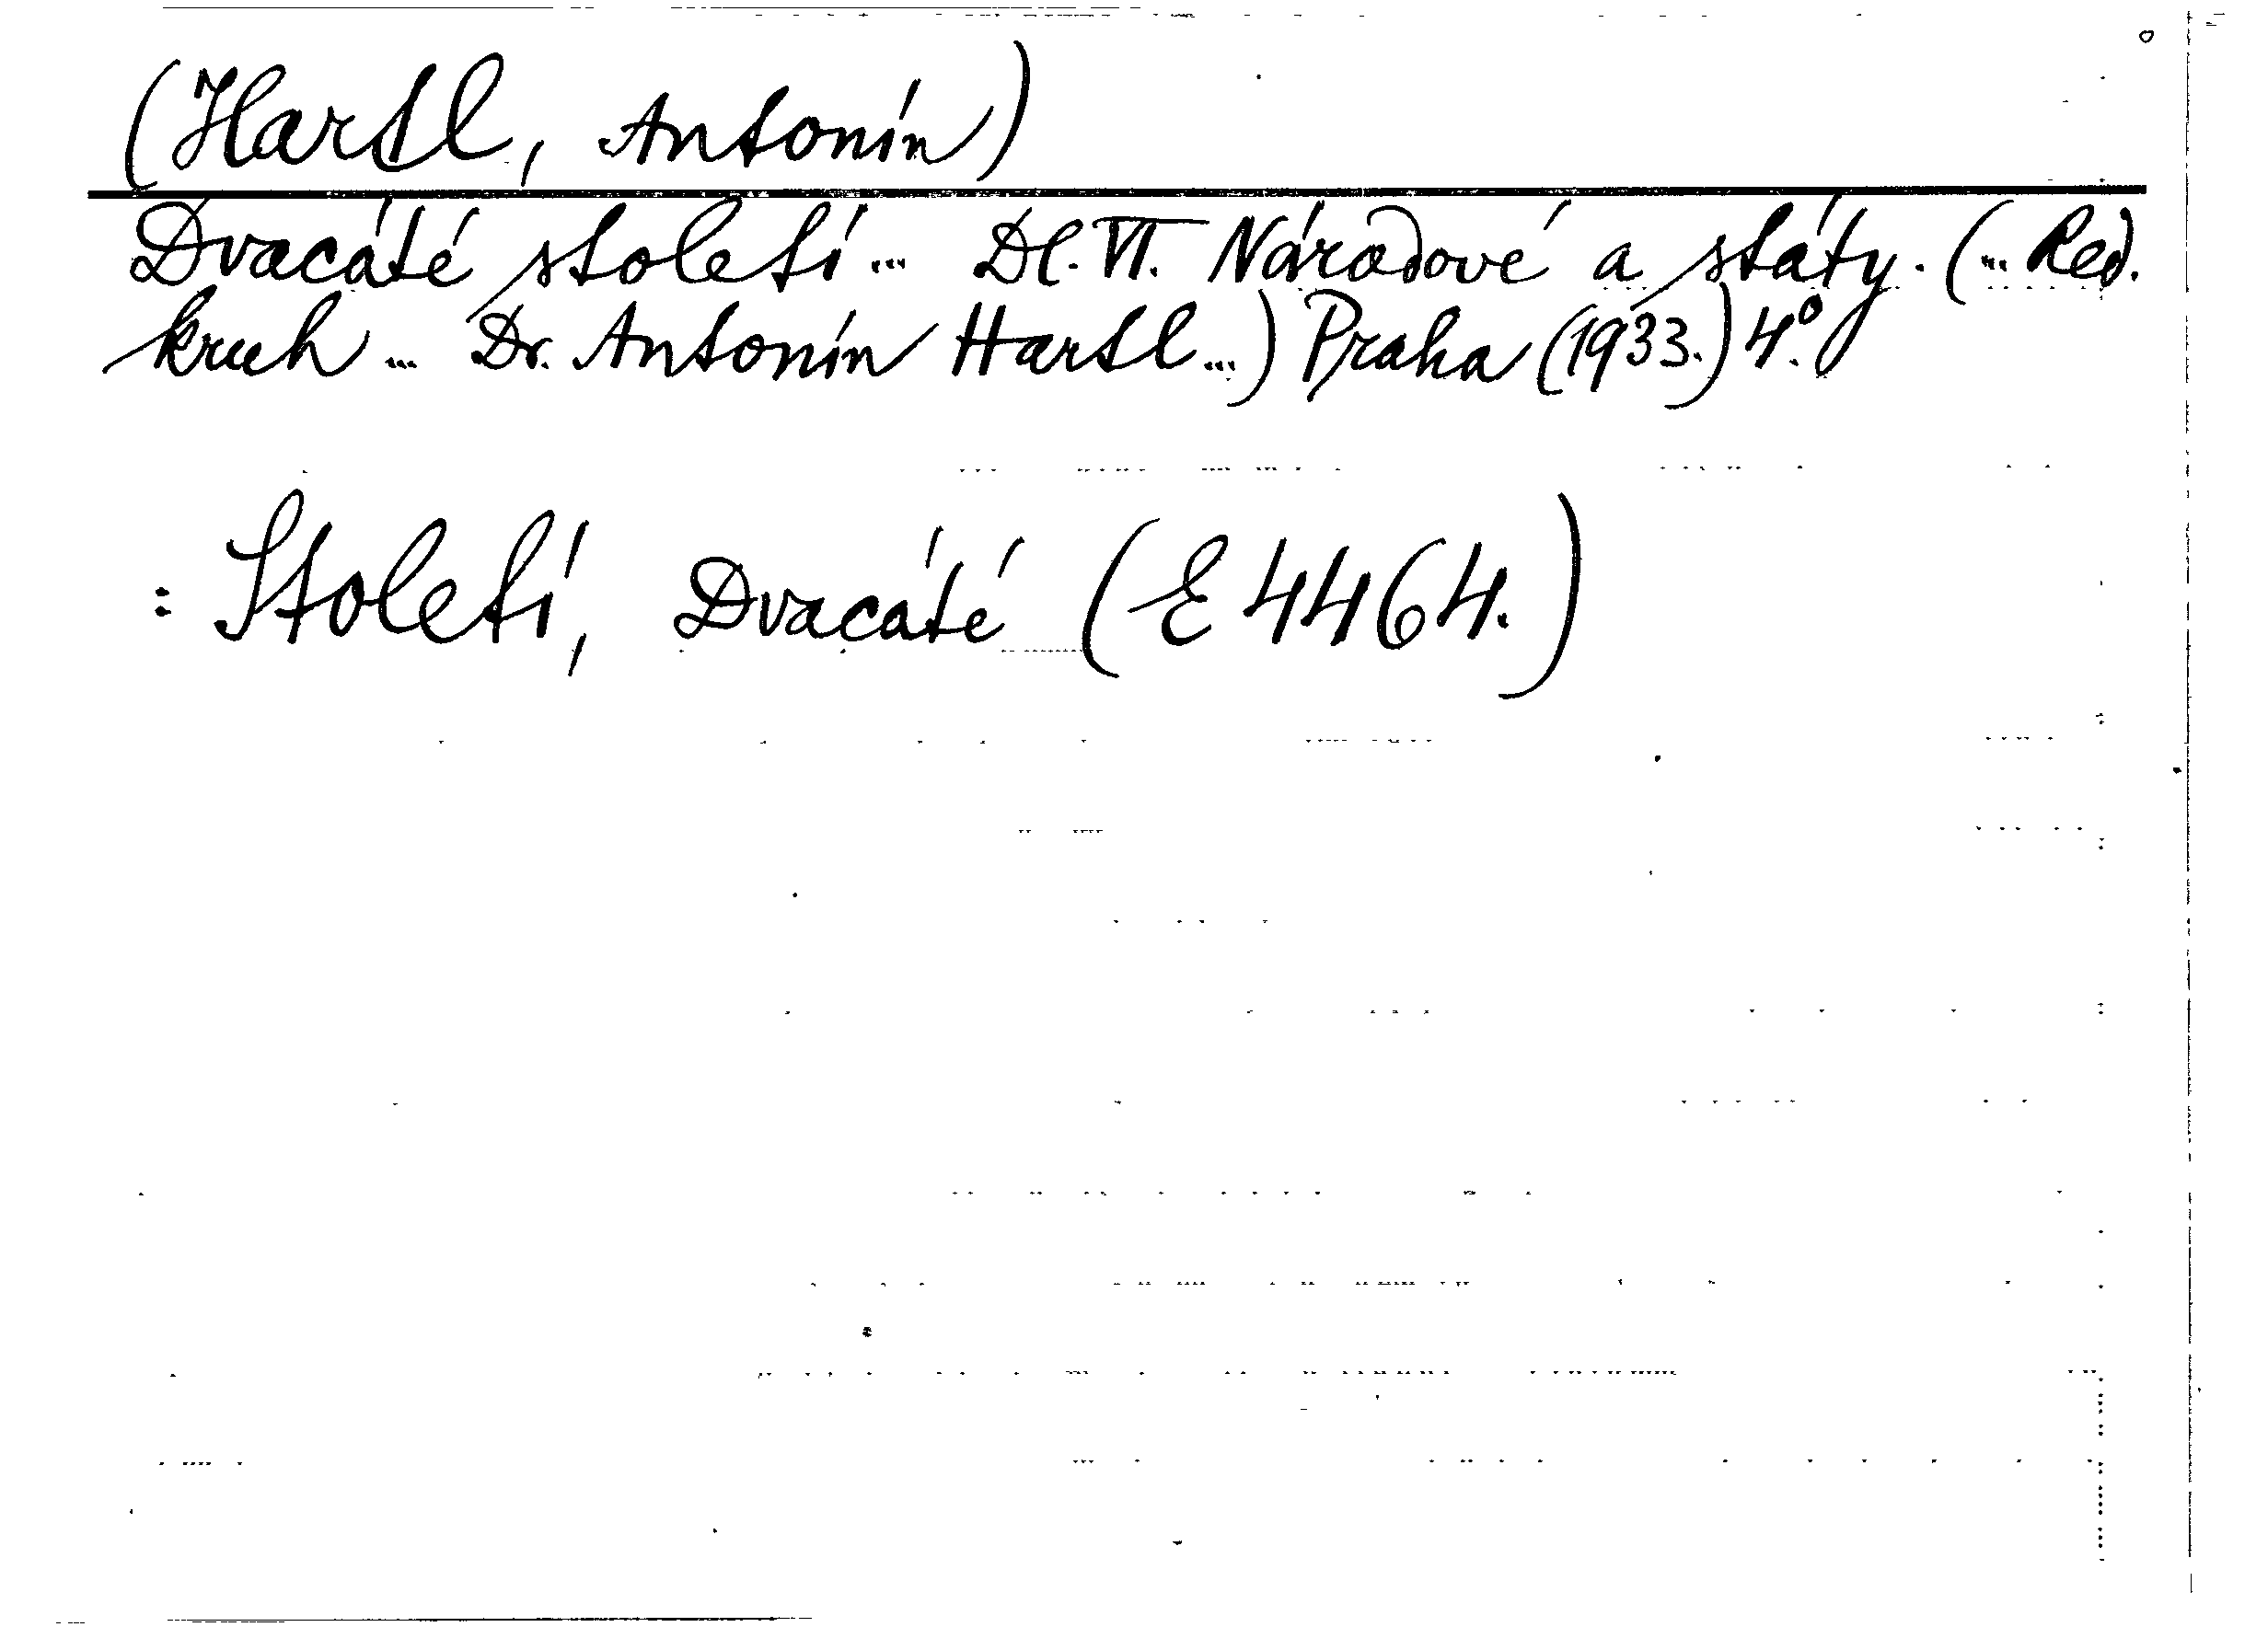 (Hartl, Antonín)
Dvacáté století... Dl. VI. Národové a státy. (... Red.
kruh ... Dr. Antonín Hartl ...) Praha (1933.) 4.º
: Století, Dvacáté (E 4464.)